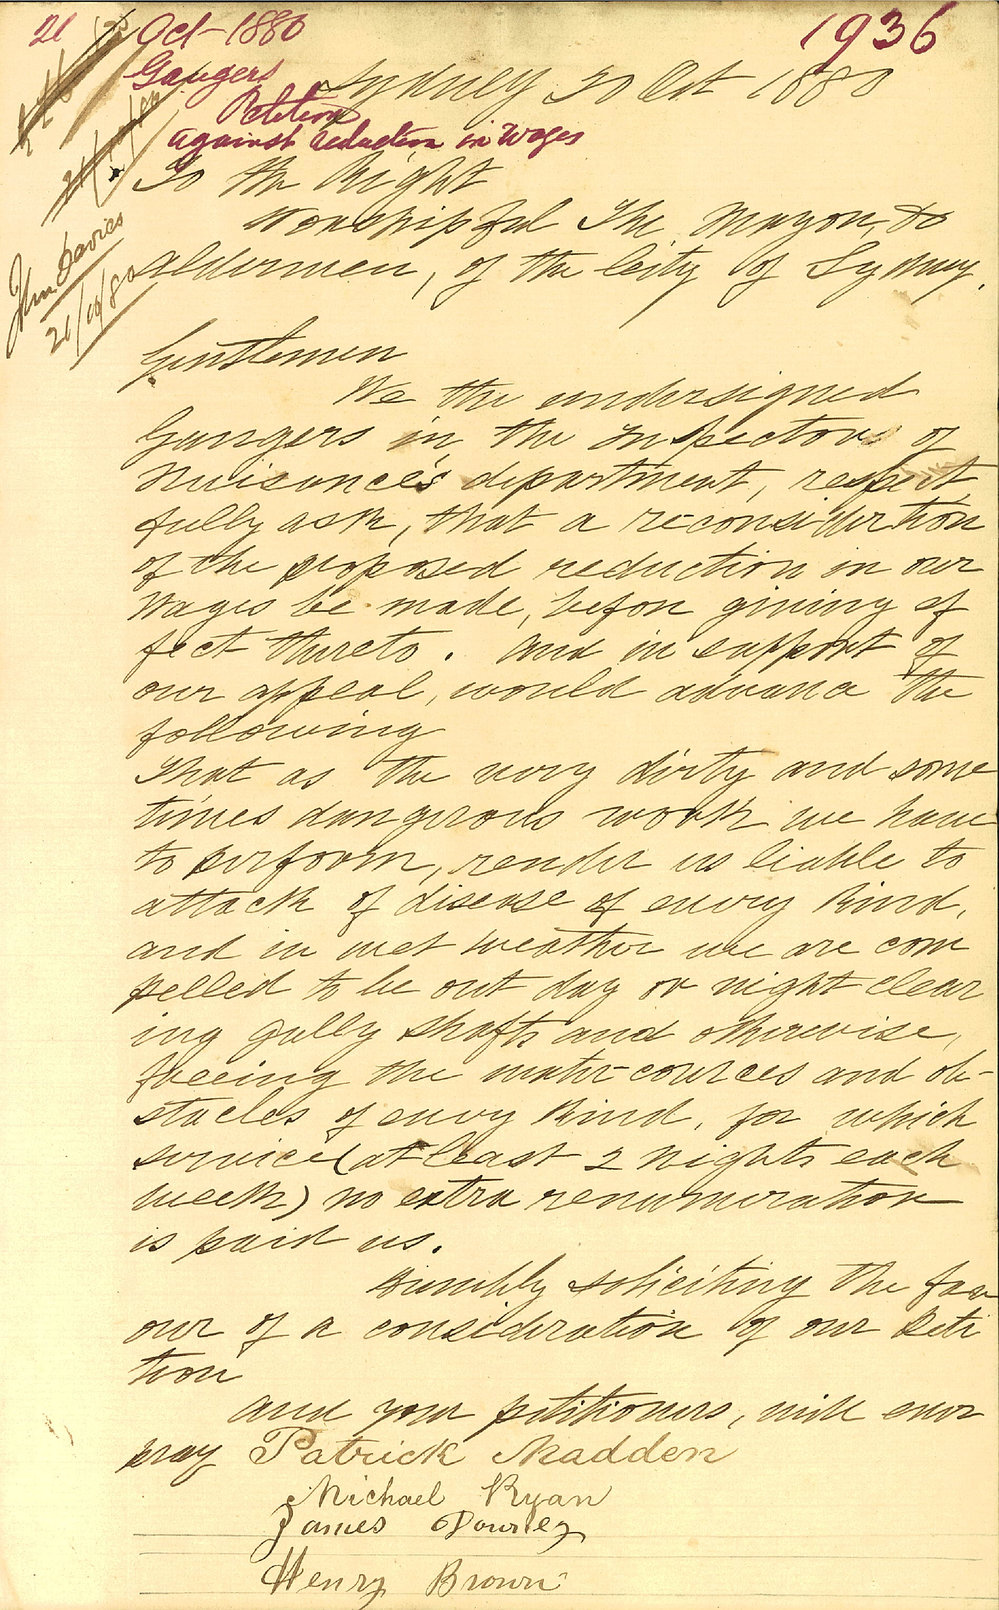 21 Oct 1880
1936
Gaugers
Petition
against reduction in Wages
John Davies
21/10/80
Sydney 20 Oct 1880
To the Right
Worshipful The Mayor, &
Aldermen, of the City of Sydney.
Gentlemen
We the undersigned
Gangers in the Inspector of
Nuisances's department, respect
fully ask, that a re-consideration
of the proposed reduction in our
wages be made, before giving ef
fect thereto. And in support of
our appeal, would advance the
following
That as the very dirty and some
times dangerous work we have
to perform, render us liable to
attack of disease of every kind,
and in wet weather we are com
pelled to be out day or night clear
ing gully shafts and otherwise,
freeing the water-cources and ob-
stacles of every kind, for which
service (at least 2 nights each
week) no extra renumeration
is paid us.
Humbly soliciting the fav
our of a consideration of our peti
tion
And your petitioners, will ever
pray Patrick Madden
Michael Ryan
James
Henry Brown